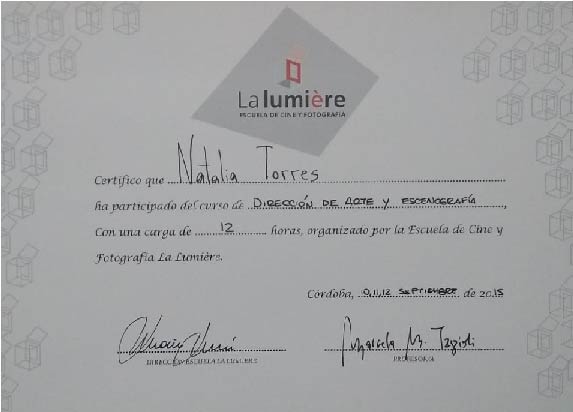 La lumière
ESCUELA DE CINE Y FOTOGRAFÍA
Certifico que Natalia Torres
ha participado del curso de DIRECCIÓN DE ARTE Y ESCENOGRAFÍA,
Con una carga de 12 horas, organizado por la Escuela de Cine y
Fotografía La Lumière.
Córdoba, 10,11,12 SEPTIEMBRE de 2015
DIRECCIÓN ESCUELA LA LUMIERE PROFESOR/A